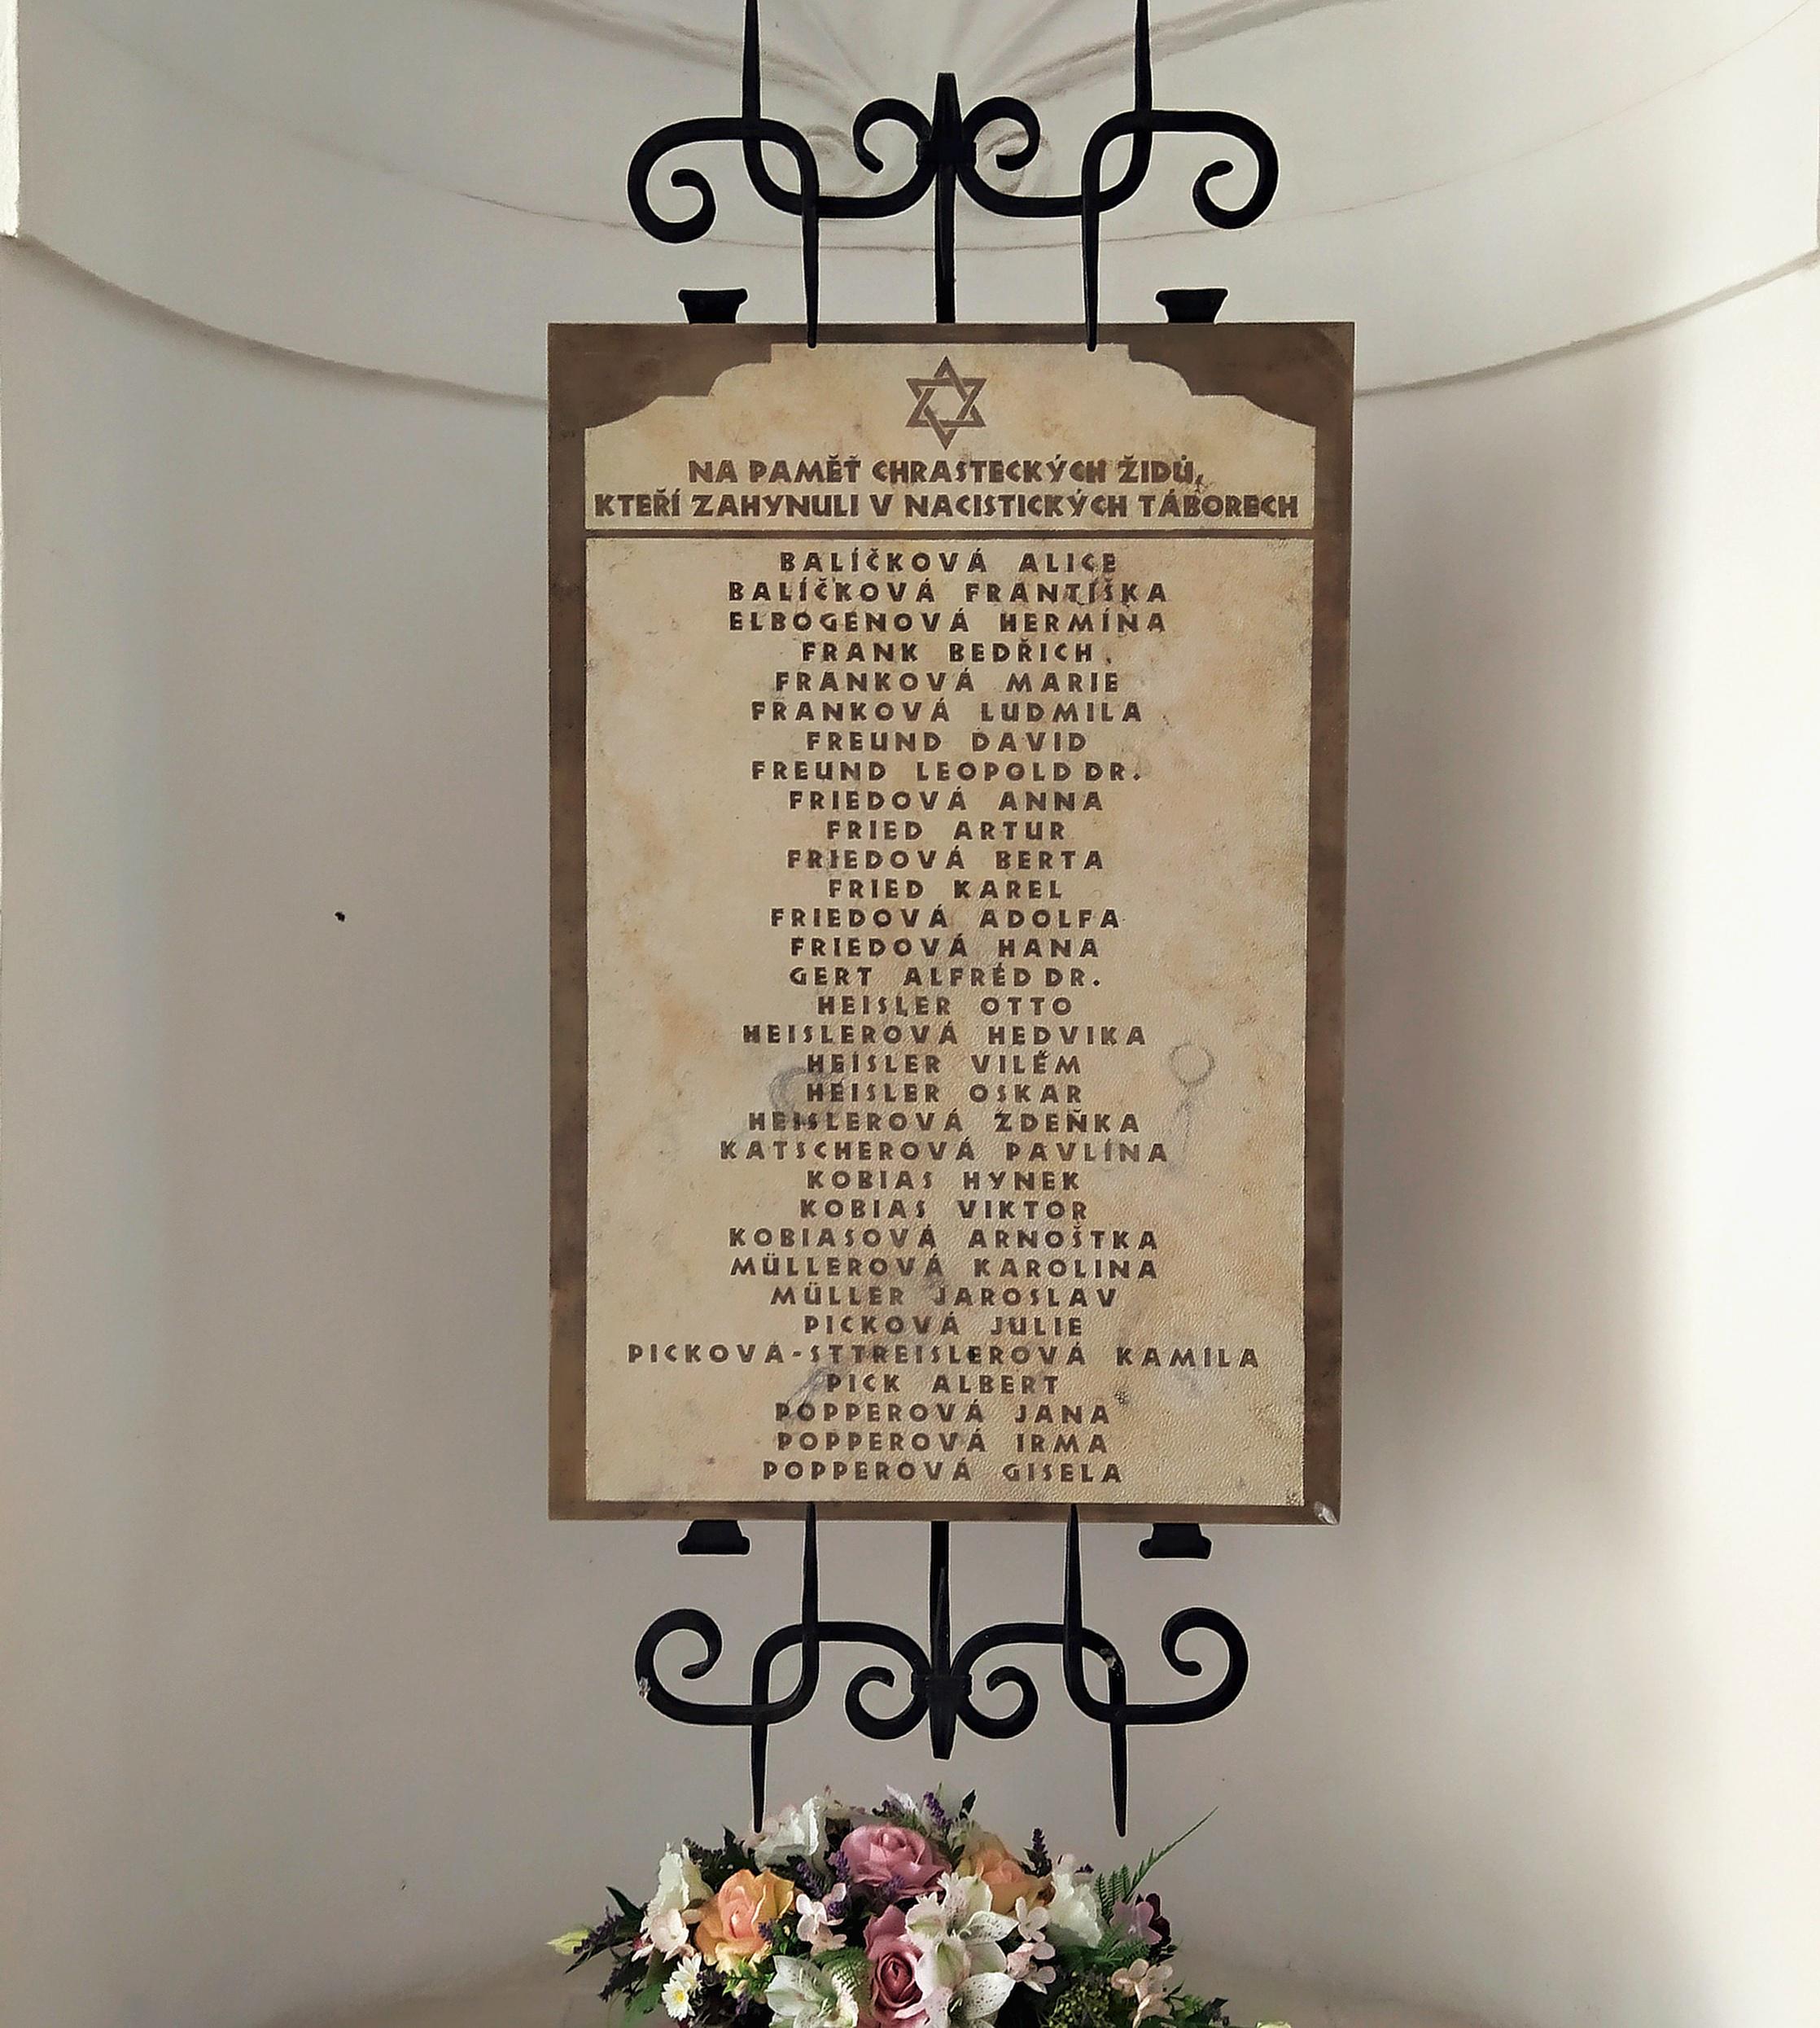 NA PAMĚŤ CHRASTECKÝCH ŽIDŮ,
KTEŘÍ ZAHYNULI V NACISTICKÝCH TÁBORECH
BALÍČKOVÁ ALICE
BALÍČKOVÁ FRANTIŠKA
ELBOGENOVÁ HERMÍNA
FRANK BEDŘICH
FRANKOVÁ MARIE
FRANKOVÁ LUDMILA
FREUND DAVID
FREUND LEOPOLD DR.
FRIEDOVÁ ANNA
FRIED ARTUR
FRIEDOVÁ BERTA
FRIED KAREL
FRIEDOVÁ ADOLFA
FRIEDOVÁ HANA
GERT ALFRÉD DR.
HEISLER OTTO
HEISLEROVÁ HEDVIKA
HEISLER VILÉM
HEISLER OSKAR
HEISLEROVÁ ZDEŇKA
KATSCHEROVÁ PAVLÍNA
KOBIAS HYNEK
KOBIAS VIKTOR
KOBIASOVÁ ARNOŠTKA
MÜLLEROVÁ KAROLINA
MÜLLER JAROSLAV
PICKOVÁ JULIE
PICKOVÁ-STTREISLEROVÁ KAMILA
PICK ALBERT
POPPEROVÁ JANA
POPPEROVÁ IRMA
POPPEROVÁ GISELA